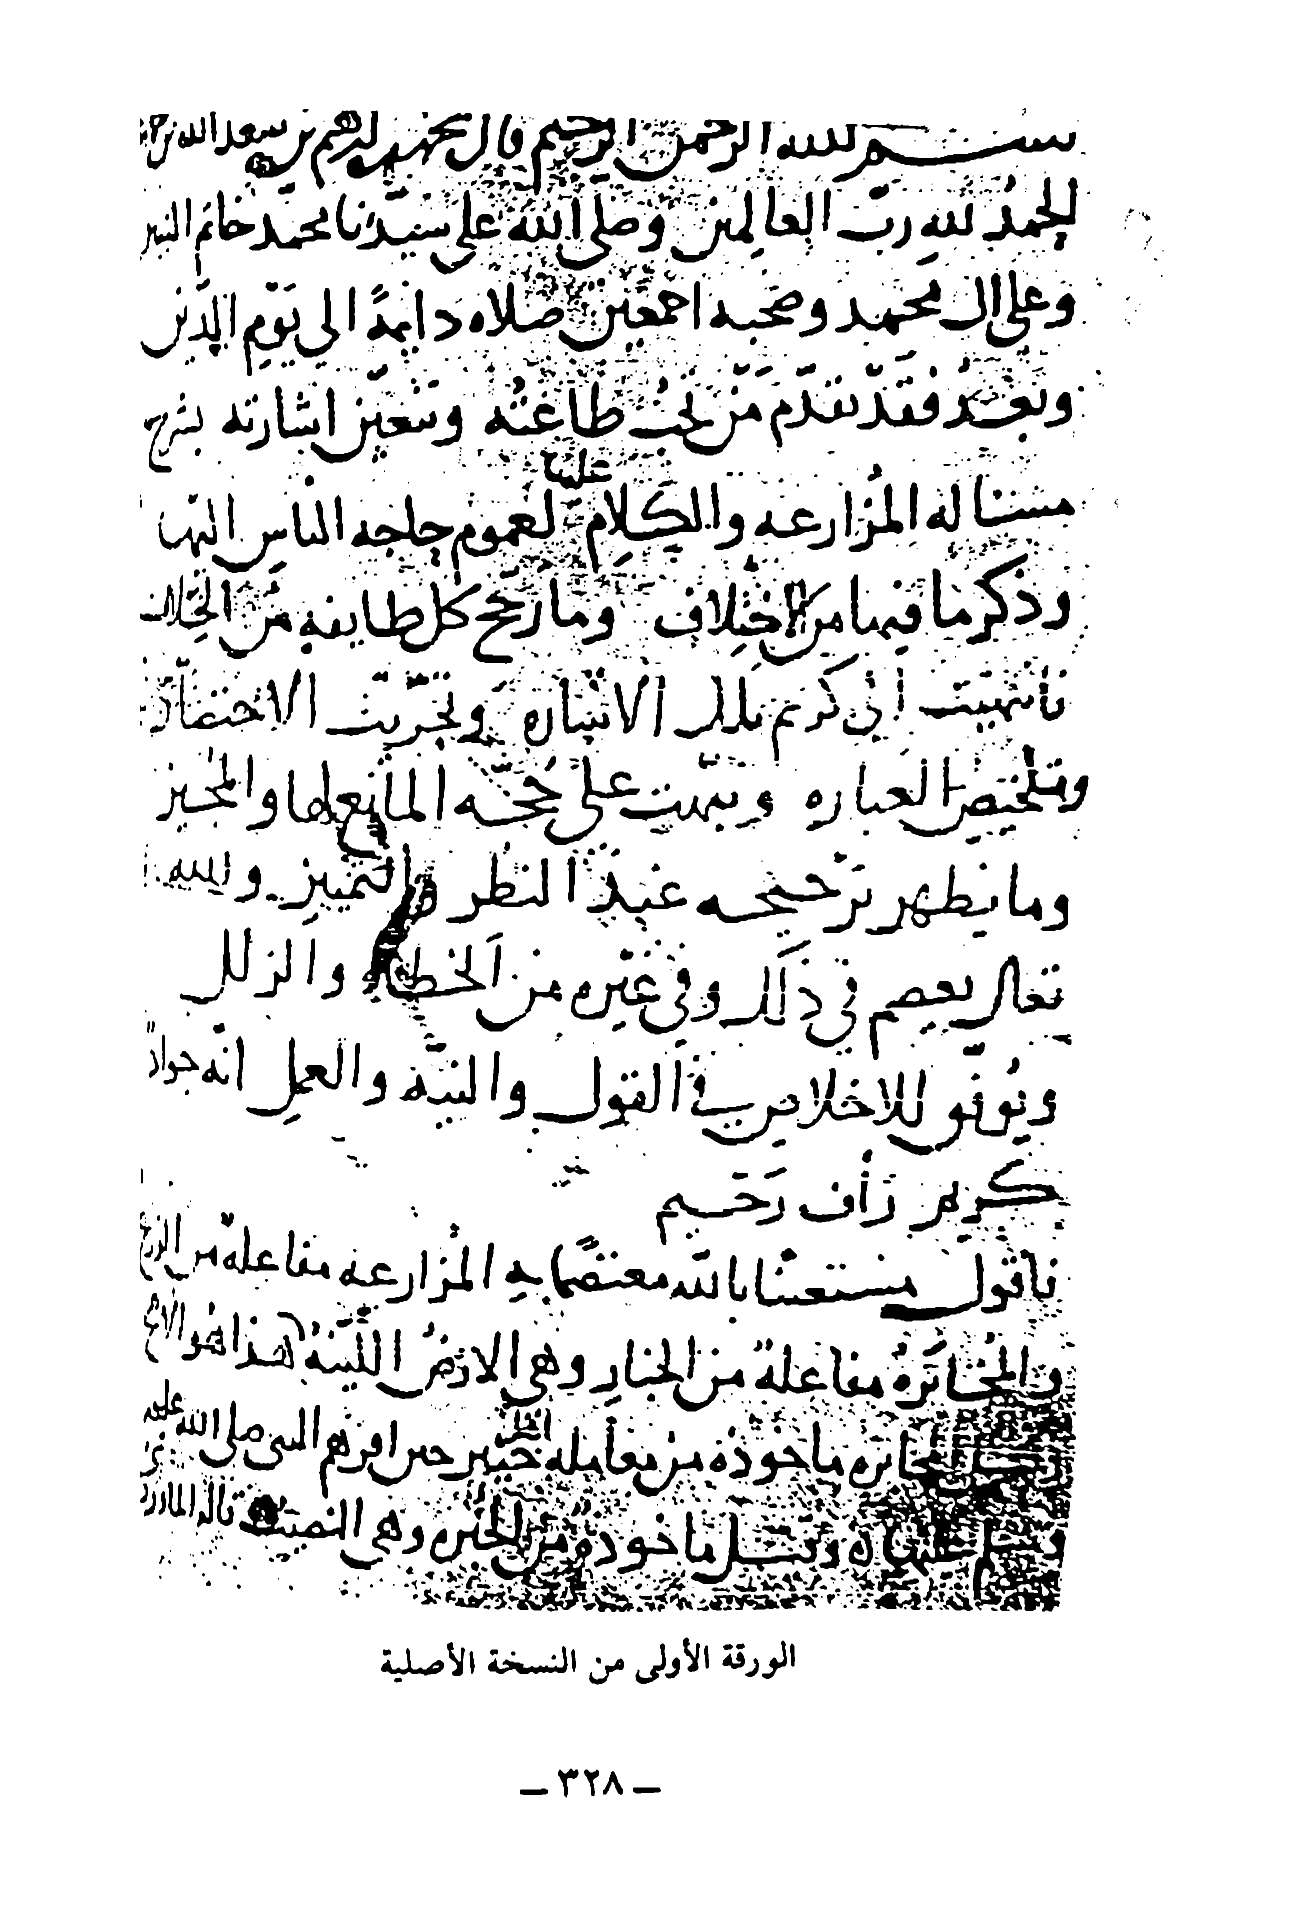 بسم الله الرحمن الرحيم قال محمد بن ابرهيم بن سعد الله بن
الحمد لله رب العالمين وصلى الله على سيدنا محمد خاتم النبيين
وعلى ال محمد وصحبه اجمعين صلاه دايمة الى يوم الدين
وبعد فقد تقدم من تجب طاعته وتتعين اشارته بشرح
مسئاله المزارعه والكلام عليها لعموم حاجه الناس اليها
وذكر ما فيها من الاختلاف وما رجح كل طايفه من الخلاف
فانتهيت الى كريم تلك الاشاره وتحريت الاختصار
وتلخيص العباره ونبهت على حجه المانع لها والمجيز
وما يظهر ترجيحه عند النظر والتمييز والله
تعالى يعصم في ذلك وفي غيره من الخطاء والزلل
ويوفق للاخلاص في القول والنية والعمل انه جواد
كريم رأف رحيم
فاقول مستعينا بالله معتصما به المزارعه مفاعلة من الزرع
والمخابرة مفاعلة من الخبار وهي الارض اللينة هذا هو الاصح
وقيل المخابره ماخوذة من معامله اهل خيبر حين اقرهم النبي صلى الله عليه
وسلم عليها وقيل ماخوذة من الخبره وهي النصيب قاله الماوردي
الورقة الأولى من النسخة الأصلية
— ٣٢٨ —